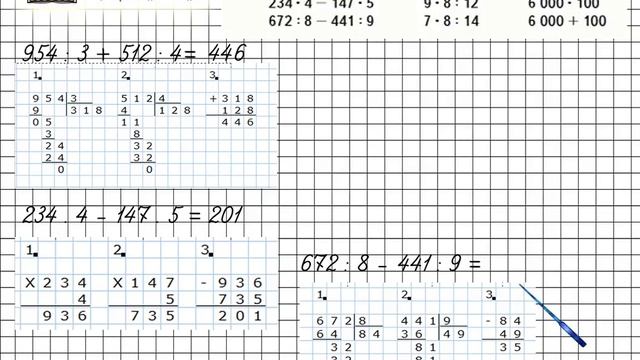 234 · 4 − 147 · 5 9 · 8 : 12 6 000 · 100
672 : 8 − 441 : 9 7 · 8 : 14 6 000 + 100
954 : 3 + 512 : 4 = 446
1. 2. 3.
9 5 4 3 5 1 2 4 + 3 1 8
9 3 1 8 4 1 2 8 1 2 8
0 5 1 1 4 4 6
3 8
2 4 3 2
2 4 3 2
0 0
234 . 4 - 147 . 5 = 201
1. 2. 3.
X 2 3 4 X 1 4 7 - 9 3 6
4 5 7 3 5
9 3 6 7 3 5 2 0 1
672 : 8 - 441 : 9 =
1. 2. 3.
6 7 2 8 4 4 1 9 - 8 4
6 4 8 4 3 6 4 9 4 9
3 2 8 1 3 5
3 2 8 1